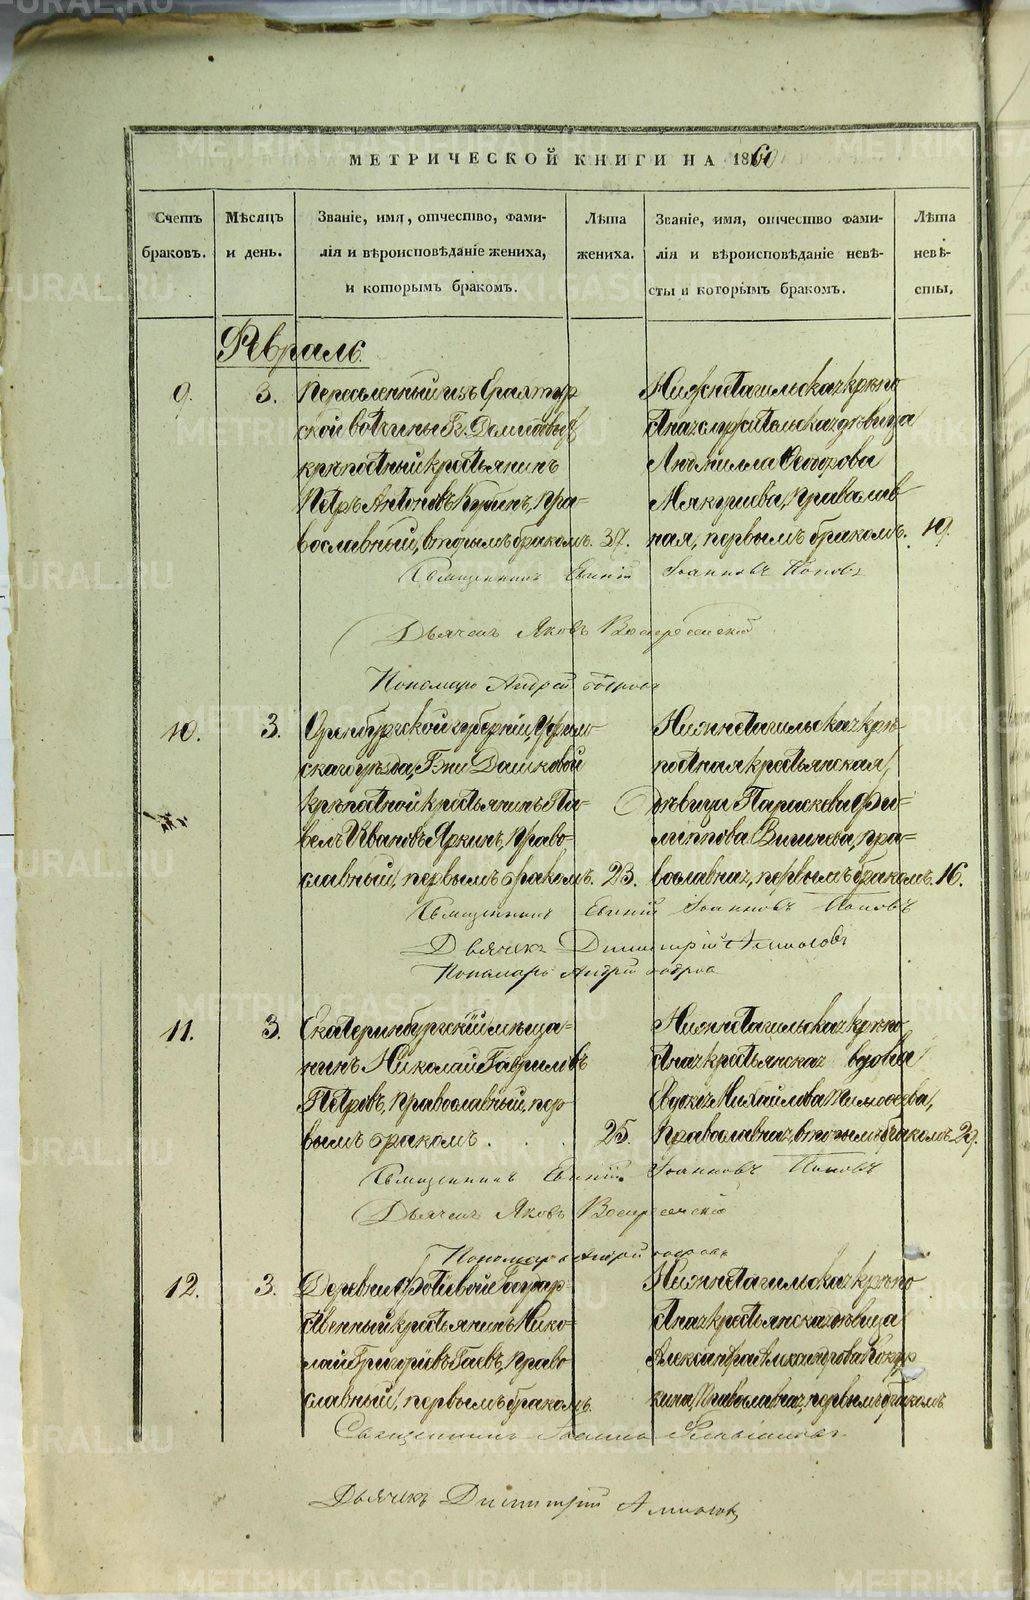 МЕТРИЧЕСКОЙ КНИГИ НА 1860
Счетъ браковъ.
Мѣсяцъ и день.
Званіе, имя, отчество, фами-
лія и вѣроисповѣданіе жениха,
и которымъ бракомъ.
Лѣта жениха.
Званіе, имя, отчество фами-
лія и вѣроисповѣданіе невѣ-
сты и которымъ бракомъ.
Лѣта невѣ-
сты.
Февраль.
9. 3. Переселенный изъ
ской вотчины Гг. Демидовых
крѣпостный крестьянинъ
Петръ Антоновъ Куринъ, пра-
вославный, вторымъ бракомъ. 37.
Нижнетагильская крѣпо
стная служительская дѣвица
Людмилла Ѳеодорова
Мякушева, православ
ная, первымъ бракомъ. 19.
Священникъ Евгеній Іоанновъ Поповъ
Дьячекъ Яковъ Воскресенскій
Пономарь Андрей Бобровъ
10. 3. Оренбургской губерніи, Уфим
скаго уѣзда, Г-жи Дашковой
крѣпостной крестьянинъ Па-
велъ Ивановъ Яркинъ, право-
славный, первымъ бракомъ. 23.
Нижнетагильская крѣ
постная крестьянская
дѣвица Параскева Фи-
липпова Вишнева, пра-
вославная, первымъ бракомъ. 16.
Священникъ Евгеній Іоанновъ Поповъ
Дьячекъ Димитрій
Пономарь Андрей Бобровъ
11. 3. Екатеринбургскій мѣща-
нинъ Николай Гавриловъ
Петровъ, православный, пер
вымъ бракомъ . . . 25.
Нижнетагильская крѣпо
стная крестьянская вдова
Евдокия Михайлова Тимофеева,
православная, вторымъ бракомъ 29.
Священникъ Евгеній Іоанновъ Поповъ
Дьячекъ Яковъ Воскресенскій
Пономарь Андрей Бобровъ
12. 3. Деревни Фотѣевой Государ
ственный крестьянинъ Нико-
лай Григорьевъ Гаевъ, право
славный, первымъ бракомъ.
Нижнетагильская крѣпо
стная крестьянская дѣвица
Александра Александрова
кина, православная, первымъ бракомъ
Священникъ Іоаннъ
Дьячекъ Димитрій
METRIKI.GASO-URAL.RU